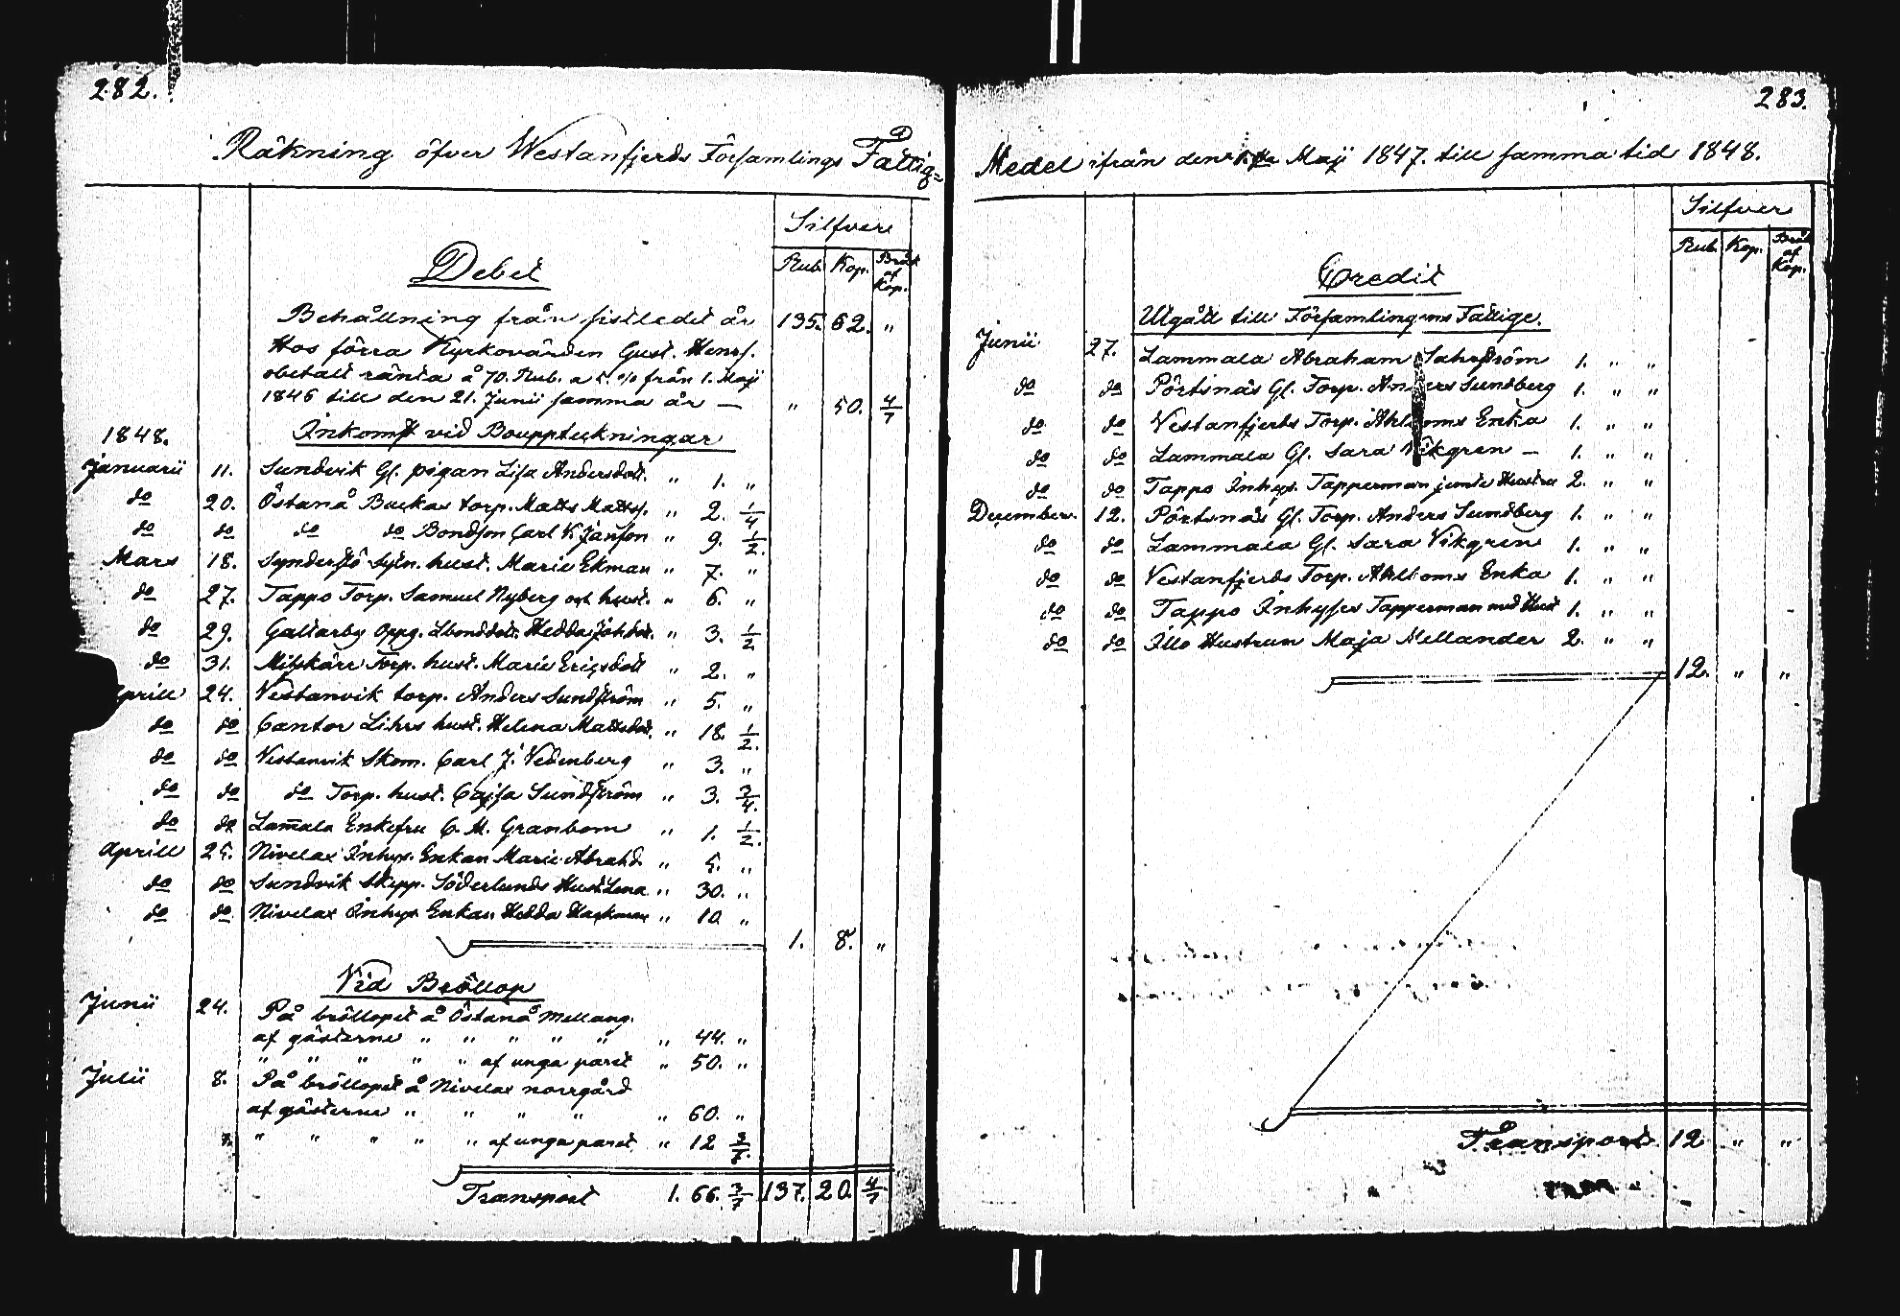 282.
Räkning öfver Westanfjerds Församlings Fattig=
Silfver
Debet
Rub. Kop. Bråk af Kop.
Behållning från sistledet år 135. 62. "
Hos förra Kyrkovärden Gust. Henrs.
obetalt ränta å 70. Rub. a 5. % från 1. Maji
1846 till den 21. Junii samma år — " 50. 4/7
1848. Inkomst vid Bouppteckningar
Januarii 11. Sundvik Gl. pigan Lisa Andersdott. " 1. "
do 20. Östanå Backas torp. Matts Matts. " 2. 1/4
do do do do Bondson Carl K. Jansson " 9. 1/2.
Mars 18. Synderstö Sytn. hust. Maria Ekman " 7. "
do 27. Tappo Torp. Samuel Nyberg och hust. " 6. "
do 29. Galtarby Oppg. Lbonddott. Hedda Johsdot. " 3. 1/2
do 31. Misskärr Torp. hust. Maria Ericsdott " 2. "
Aprill 24. Vestanvik torp. Anders Sundström " 5. "
do do Cantor Lihrs hust. Helena Mattsdot. " 18. 1/2.
do do Vestanvik Skom. Carl J. Vedenberg " 3. "
do do do Torp. hust. Cajsa Sundström " 3. 3/4.
do do Lam̅ala Enkefru C. M. Granbom " 1. 1/2.
Aprill 25. Nivelax Inhys. Enkan Maria Abrahd. " 5. "
do do Sundvik Skepp. Söderlunds Hust Lena " 30. "
do do Nivelax Inhys Enkan Hedda Hackman " 10. "
1. 8. "
Vid Bröllop
Junii 24. På bröllopet å Östanå Mellang.
af gästerne " " " " " " 44. "
" " " " " af unga paret " 50. "
Julii 8. På bröllopet å Nivelax norrgård
af gästerne " " " " " 60. "
" " " " " af unga paret " 12 3/7.
Transport 1. 66. 3/7 137. 20. 4/7
283.
Medel ifrån den 1.sta Maji 1847. till samma tid 1848.
Silfver
Rub. Kop. Bråk af Kop.
Credit
Utgått till Församlingens Fattige.
Junii 27. Lammala Abraham Sahrström 1. " "
do do Pörtsnäs Gl. Torp. Anders Sundberg 1. " "
do do Vestanfjerds Torp. Ahlboms Enka 1. " "
do do Lammala Gl. Sara Vikgren — 1. " "
do do Tappo Inhys. Tapperman jemte Hustru 2. " "
December. 12. Pörtsnäs Gl. Torp. Anders Sundberg 1. " "
do do Lammala Gl. Sara Vikgren 1. " "
do do Vestanfjerds Torp. Ahlboms Enka 1. " "
do do Tappo Inhyses Tapperman med Hust 1. " "
do do Illo Hustrun Maja Mellander 2. " "
12. " "
Transport. 12 " "